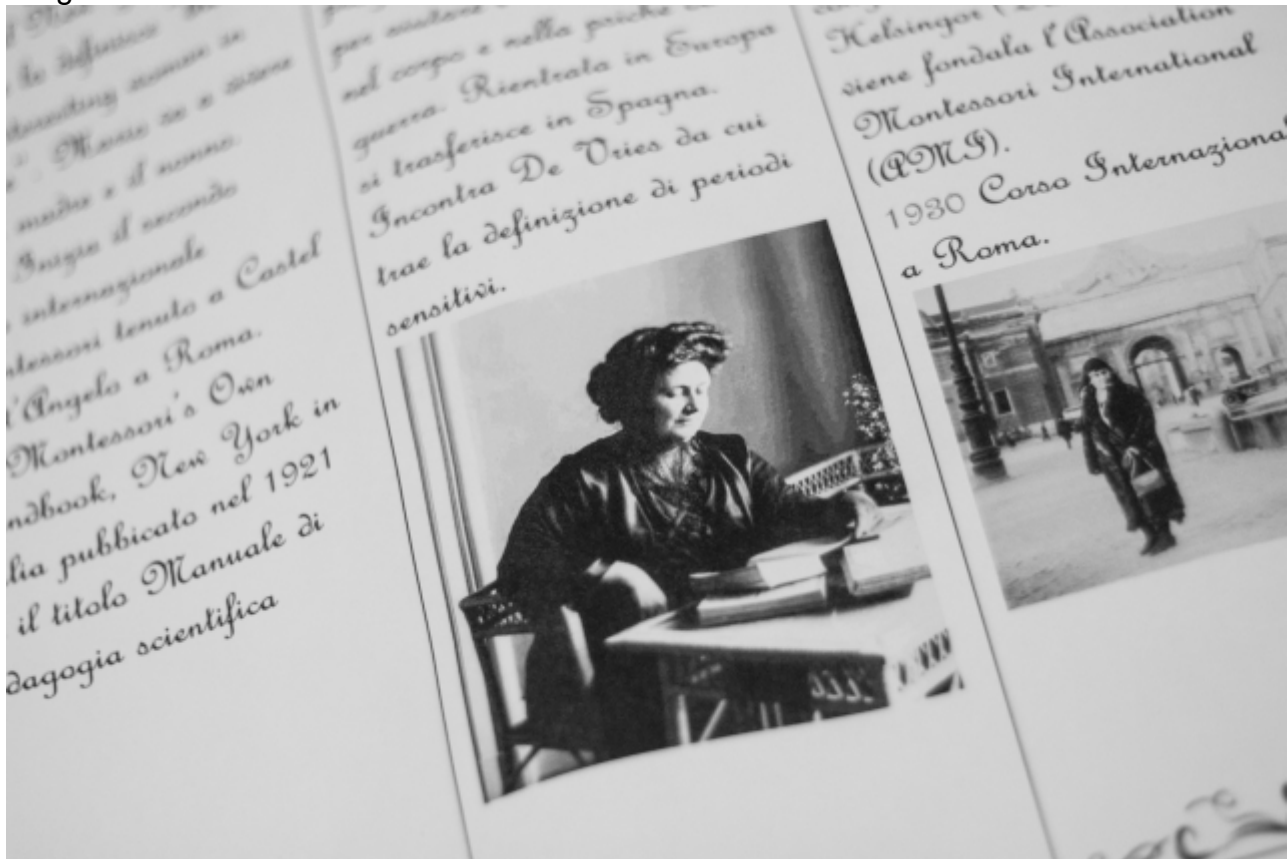 lo definisce
interesting
Mario se e
madre e il nonno.
Inizia il secondo
internazionale
tenuto a Castel
d'Angelo a Roma.
Montessori's Own
ndbook, New York in
lia pubbicato nel 1921
il titolo Manuale di
dagogia scientifica
nel corpo e nella psiche
guerra. Rientrata in Europa
si trasferisce in Spagna.
Incontra De Vries da cui
trae la definizione di periodi
sensitivi.
Helsingor
viene fondala l'Association
Montessori International
(AMI).
1930 Corso Internazional
a Roma.